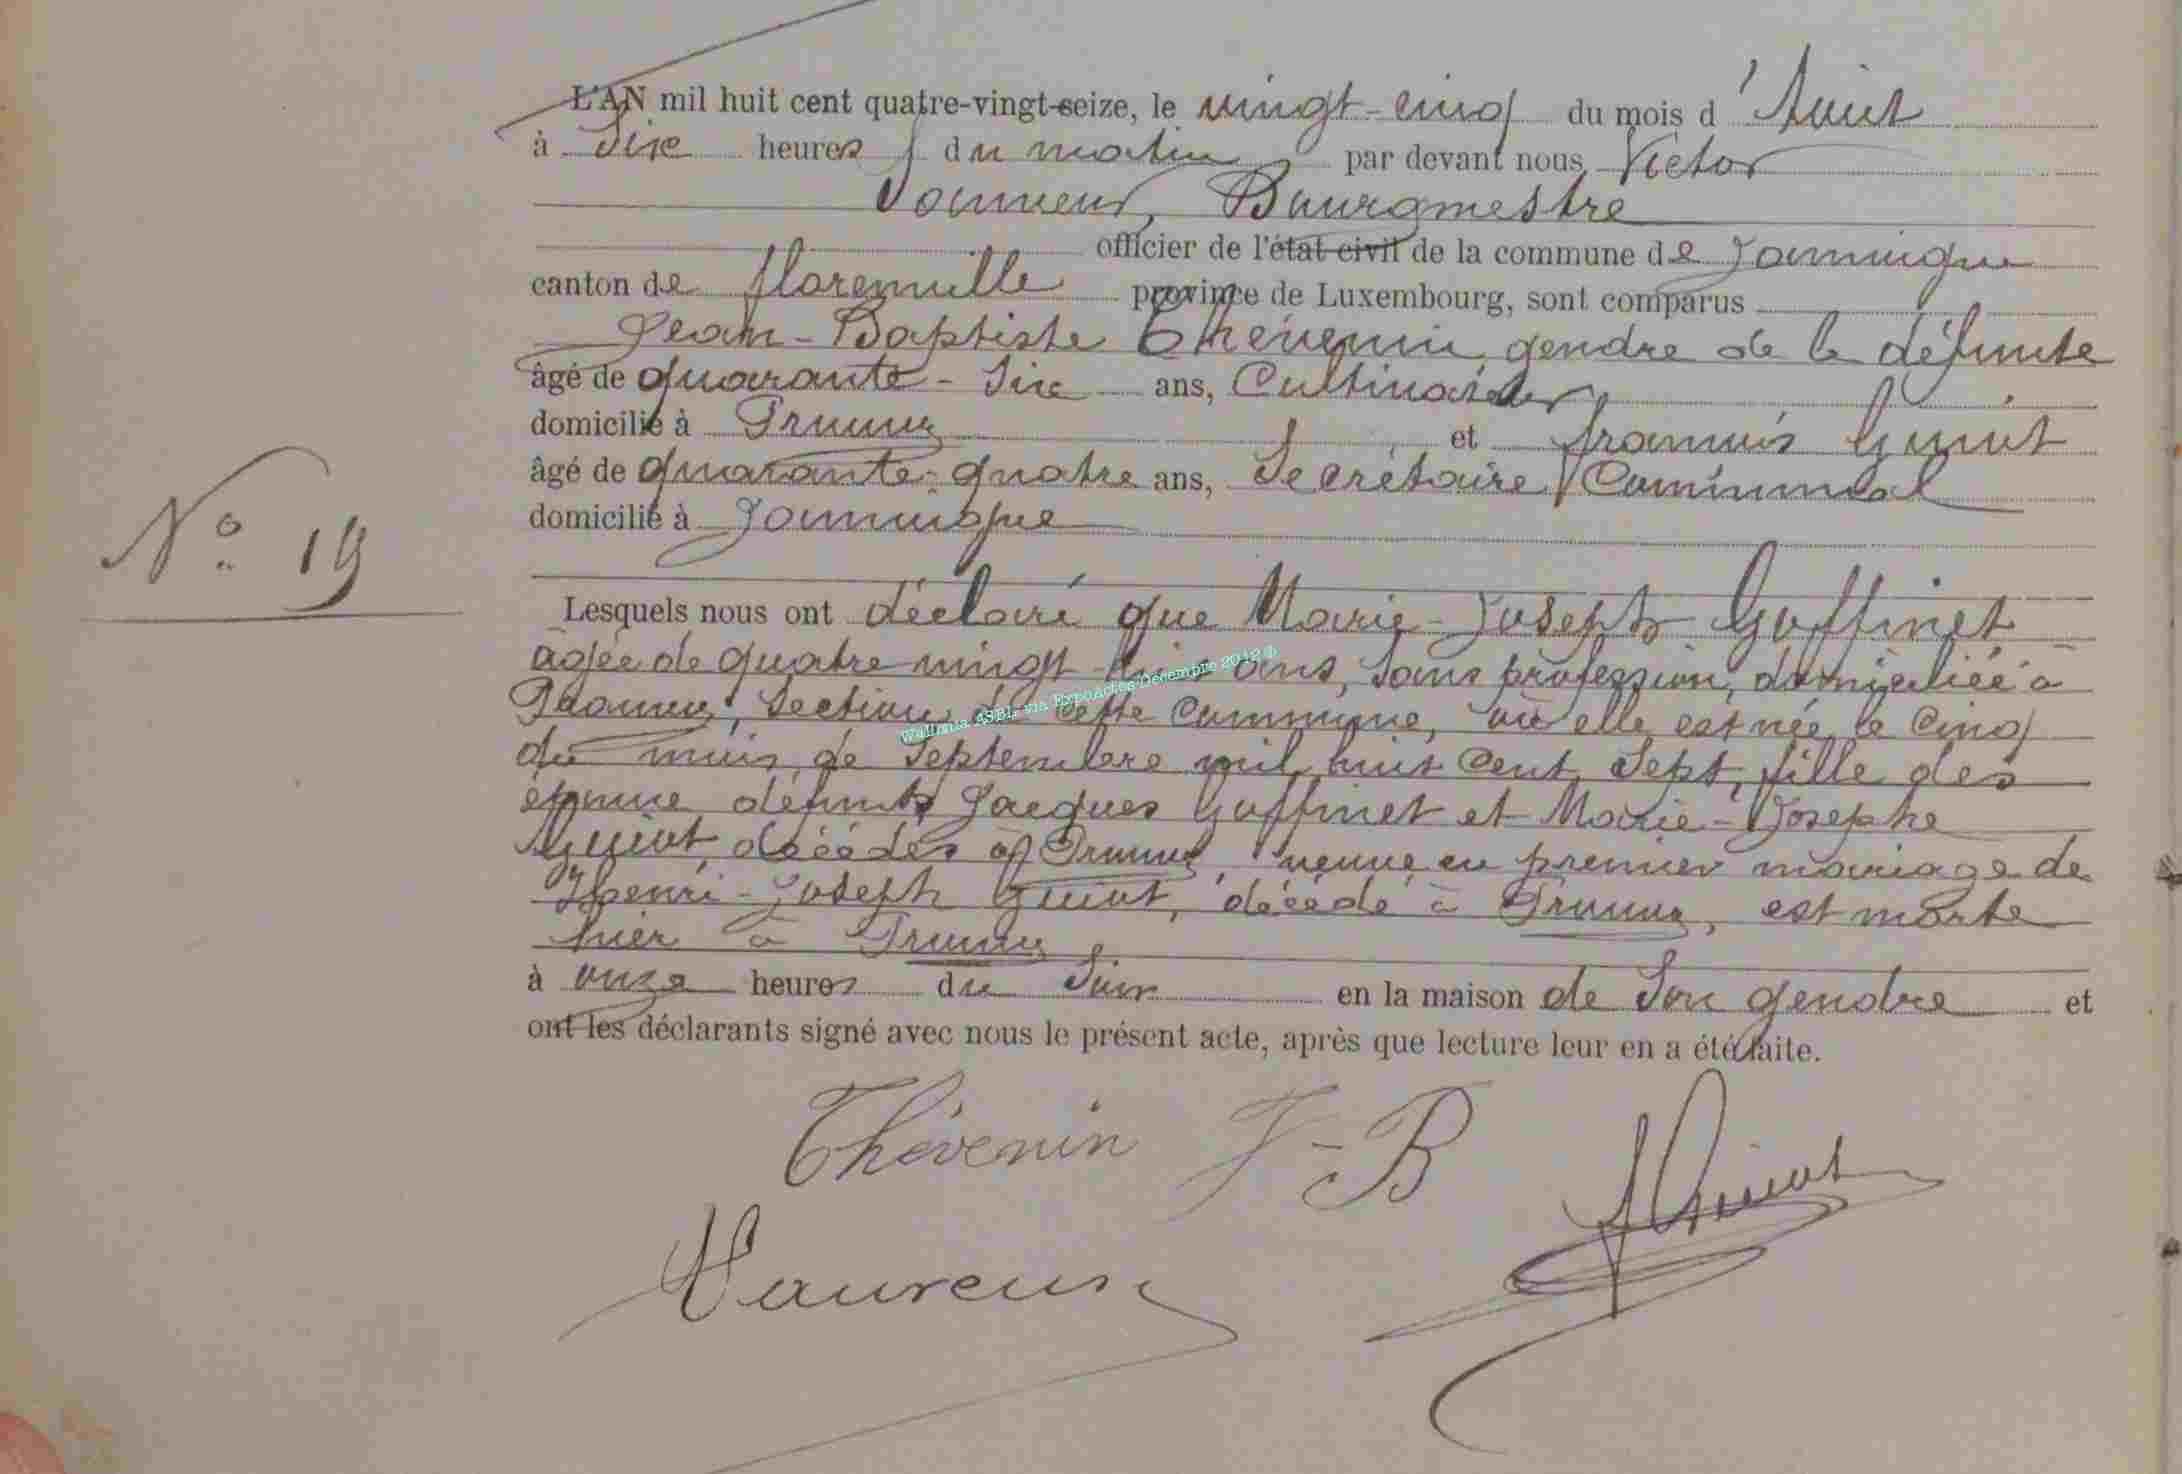 L'AN mil huit cent quatre-vingt-seize, le vingt-cinq du mois d'Août
à Six heures du matin par devant nous Victor
Vaureux, Bourgmestre
officier de l'état civil de la commune de Jamoigne
canton de florenville province de Luxembourg, sont comparus
Jean-Baptiste Thévenin, gendre de la défunte
âgé de quarante-Six ans, Cultivateur,
domicilié à Prouvy et francois Guiot
âgé de quarante-quatre ans, Secrétaire Communal
domicilié à Jamoigne
N° 19
Lesquels nous ont déclaré que Marie-Joseph Goffinet
âgée de quatre vingt ans, Sans profession, domiciliée à
Prouvy, Section de cette Commune, où elle est née le Cinq
du mois de Septembre mil huit Cent Sept, fille des
époux défunts Jacques Goffinet et Marie-Josephe
Guiot, décédés à Prouvy, veuve en premier mariage de
Henri-Joseph Guiot, décédé à Prouvy, est morte
hier à Prouvy
à onze heures du Soir en la maison de Son gendre et
ont les déclarants signé avec nous le présent acte, après que lecture leur en a été faite.
Thévenin J-B
f Guiot
Vaureux
Wallonia ASBL via ExpoActes Décembre 2012 ©